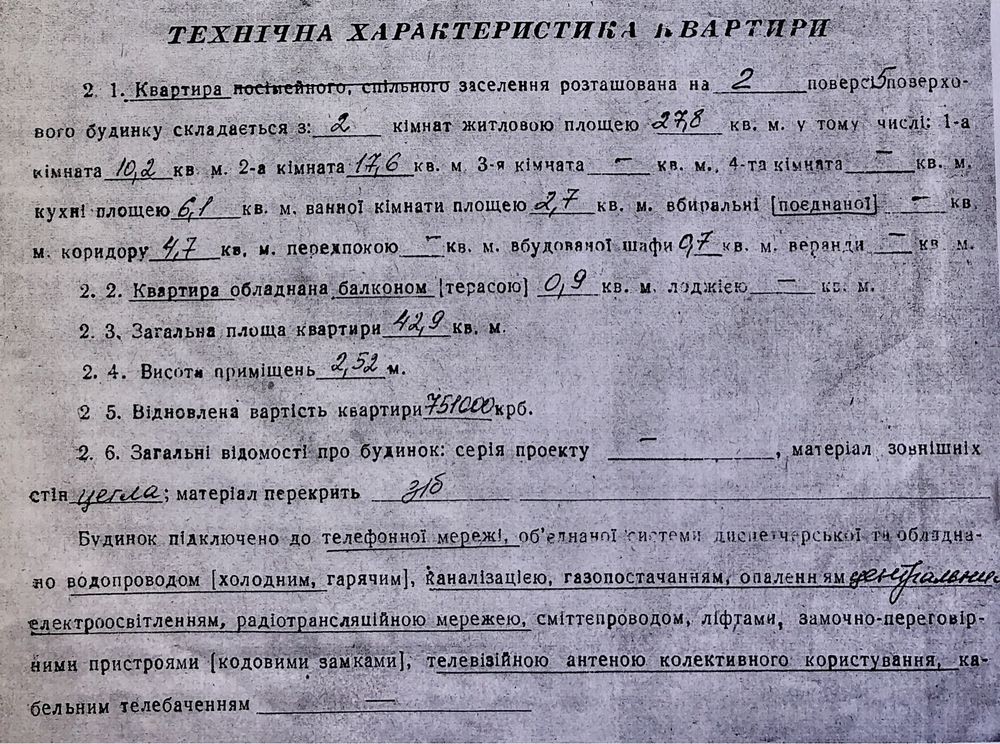 ТЕХНІЧНА ХАРАКТЕРИСТИКА КВАРТИРИ
2. 1. Квартира посімейного, спільного заселення розташована на 2 поверсі 5 поверхо-
вого будинку складається з: 2 кімнат житловою площею 27,8 кв. м. у тому числі: 1-а
кімната 10,2 кв. м. 2-а кімната 17,6 кв. м. 3-я кімната — кв. м., 4-та кімната — кв. м.
кухні площею 6,1 кв. м. ванної кімнати площею 2,7 кв. м. вбиральні [поєднаної] — кв.
м. коридору 4,7 кв. м. передпокою — кв. м. вбудованої шафи 0,7 кв. м. веранди — кв. м.
2. 2. Квартира обладнана балконом [терасою] 0,9 кв. м. лоджією — кв. м.
2. 3. Загальна площа квартири 42,9 кв. м.
2. 4. Висота приміщень 2,52 м.
2 5. Відновлена вартість квартири 751000 крб.
2. 6. Загальні відомості про будинок: серія проекту —, матеріал зовнішніх
стін цегла; матеріал перекрить з/б
Будинок підключено до телефонної мережі, об'єднаної системи диспетчерської та обладна-
но водопроводом [холодним, гарячим], каналізацією, газопостачанням, опаленням центральним
електроосвітленням, радіотрансляційною мережею, сміттепроводом, ліфтами, замочно-переговір-
ними пристроями [кодовими замками], телевізійною антеною колективного користування, ка-
бельним телебаченням —